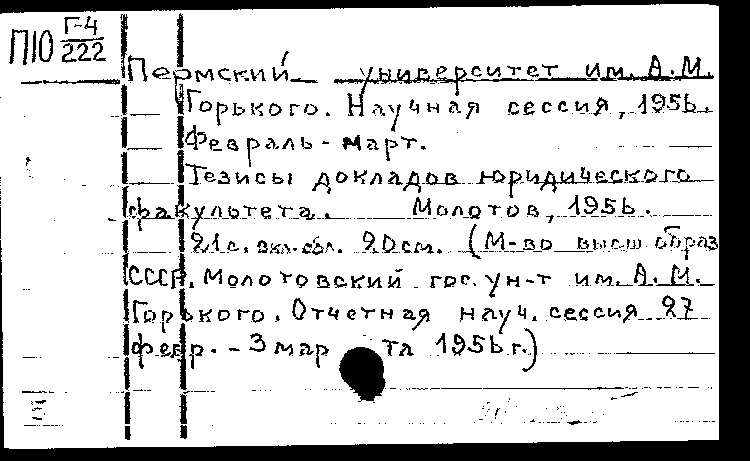 П10 Г-4/222
Пермский университет им. А.М.
Горького. Научная сессия, 1956.
Февраль - март.
Тезисы докладов юридического
факультета. Молотов, 1956.
21с. вкл. обл. 20см. (М-во высш образ
СССР. Молотовский гос. ун-т им. А.М.
Горького. Отчетная науч. сессия 27
февр. - 3 мар та 1956 г.)